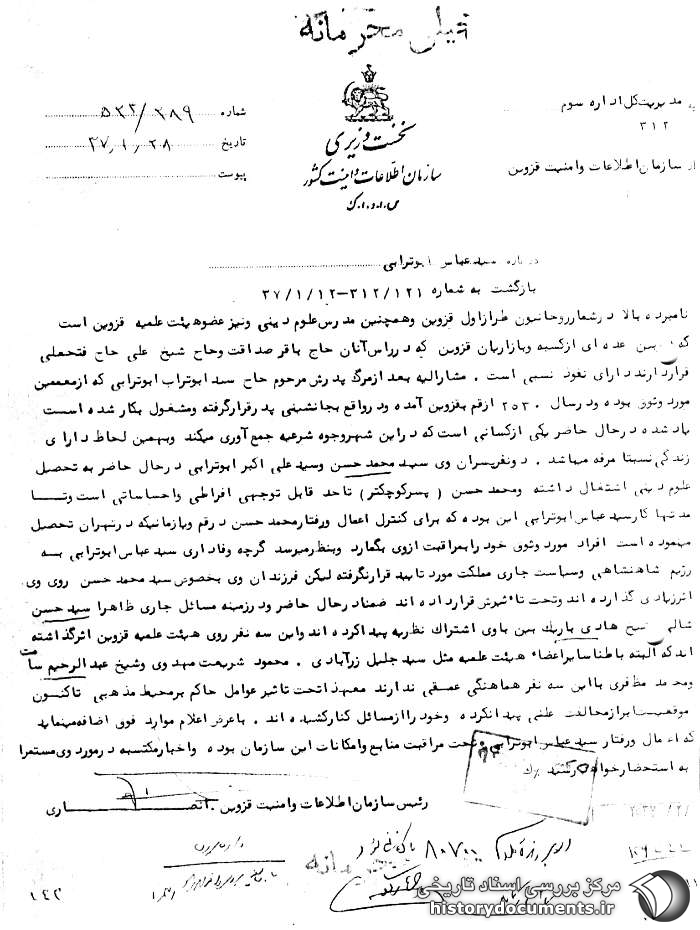 خیلی محرمانه
به مدیریت کل اداره سوم
۳۱۲
از سازمان اطلاعات و امنیت قزوین
نخست وزیری
سازمان اطلاعات و امنیت کشور
س.ا.و.ا.ک
شماره ۵۳۲/۳۸۹
تاریخ ۳۷/۱/۲۸
پیوست
درباره سید عباس ابوترابی
بازگشت به شماره ۳۱۲/۱۲۱-۳۷/۱/۱۲
نامبرده بالا در شمار روحانیون طراز اول قزوین وهمچنین مدرس علوم دینی ونیز عضو هیئت علمیه قزوین است
که بین عده ای از کسبه وبازاریان قزوین که در راس آنان حاج باقر صداقت وحاج شیخ علی حاج فتحعلی
قرار دارند دارای نفوذ نسبی است . مشارالیه بعد از مرگ پدرش مرحوم حاج سید ابوتراب ابوترابی که از معممین
مورد وثوق بوده ودر سال ۲۵۳۰ از قم بقزوین آمده ودر واقع بجانشینی پدر قرار گرفته ومشغول بکار شده است
یاد شده در حال حاضر یکی از کسانی است که در این شهر وجوه شرعیه جمع آوری میکند وبهمین لحاظ دارای
زندگی نسبتا مرفه میباشد . دو نفر پسران وی سید محمد حسن وسید علی اکبر ابوترابی در حال حاضر به تحصیل
علوم دینی اشتغال داشته ومحمد حسن ( پسر کوچکتر ) تا حد قابل توجهی افراطی واحساساتی است وتا
مدتها کار سید عباس ابوترابی این بوده که برای کنترل اعمال ورفتار محمد حسن در قم ویا زمانیکه در تهران تحصیل
مینموده است افراد مورد وثوق خود را بمراقبت از وی بگمارد وبنظر میرسد گرچه وفاداری سید عباس ابوترابی به
رژیم شاهنشاهی وسیاست جاری مملکت مورد تایید قرار نگرفته لیکن فرزندان وی بخصوص سید محمد حسن روی وی
اثر زیادی گذارده اند وتحت تاثیرش قرار داده اند ضمنا در حال حاضر ودر زمینه مسائل جاری ظاهرا سید حسن
شالی شیخ هادی باریک بین باوی اشتراک نظریه پیدا کرده اند واین سه نفر روی هیئت علمیه قزوین اثر گذاشته
اند که البته باطنا سایر اعضاء هیئت علمیه مثل سید جلیل زرآبادی . محمود شریعت مهدوی وشیخ عبدالرحیم سامت
ومحمد مظفری با این سه نفر هماهنگی عمقی ندارند معهذا تحت تاثیر عوامل حاکم بر محیط مذهبی تاکنون
موقعیت ابراز مخالفت علنی پیدا نکرده وخود را از مسائل کنار کشیده اند . با عرض اعلام موارد فوق اضافه مینماید
که اعمال ورفتار سید عباس ابوترابی تحت مراقبت منابع وامکانات این سازمان بوده واخبار مکتسبه در مورد وی مستمرا
به استحضار خواهد رسید
رئیس سازمان اطلاعات و امنیت قزوین . انصاری
محرمانه
۱۴۲
مرکز بررسی اسناد تاریخی
historydocuments.ir